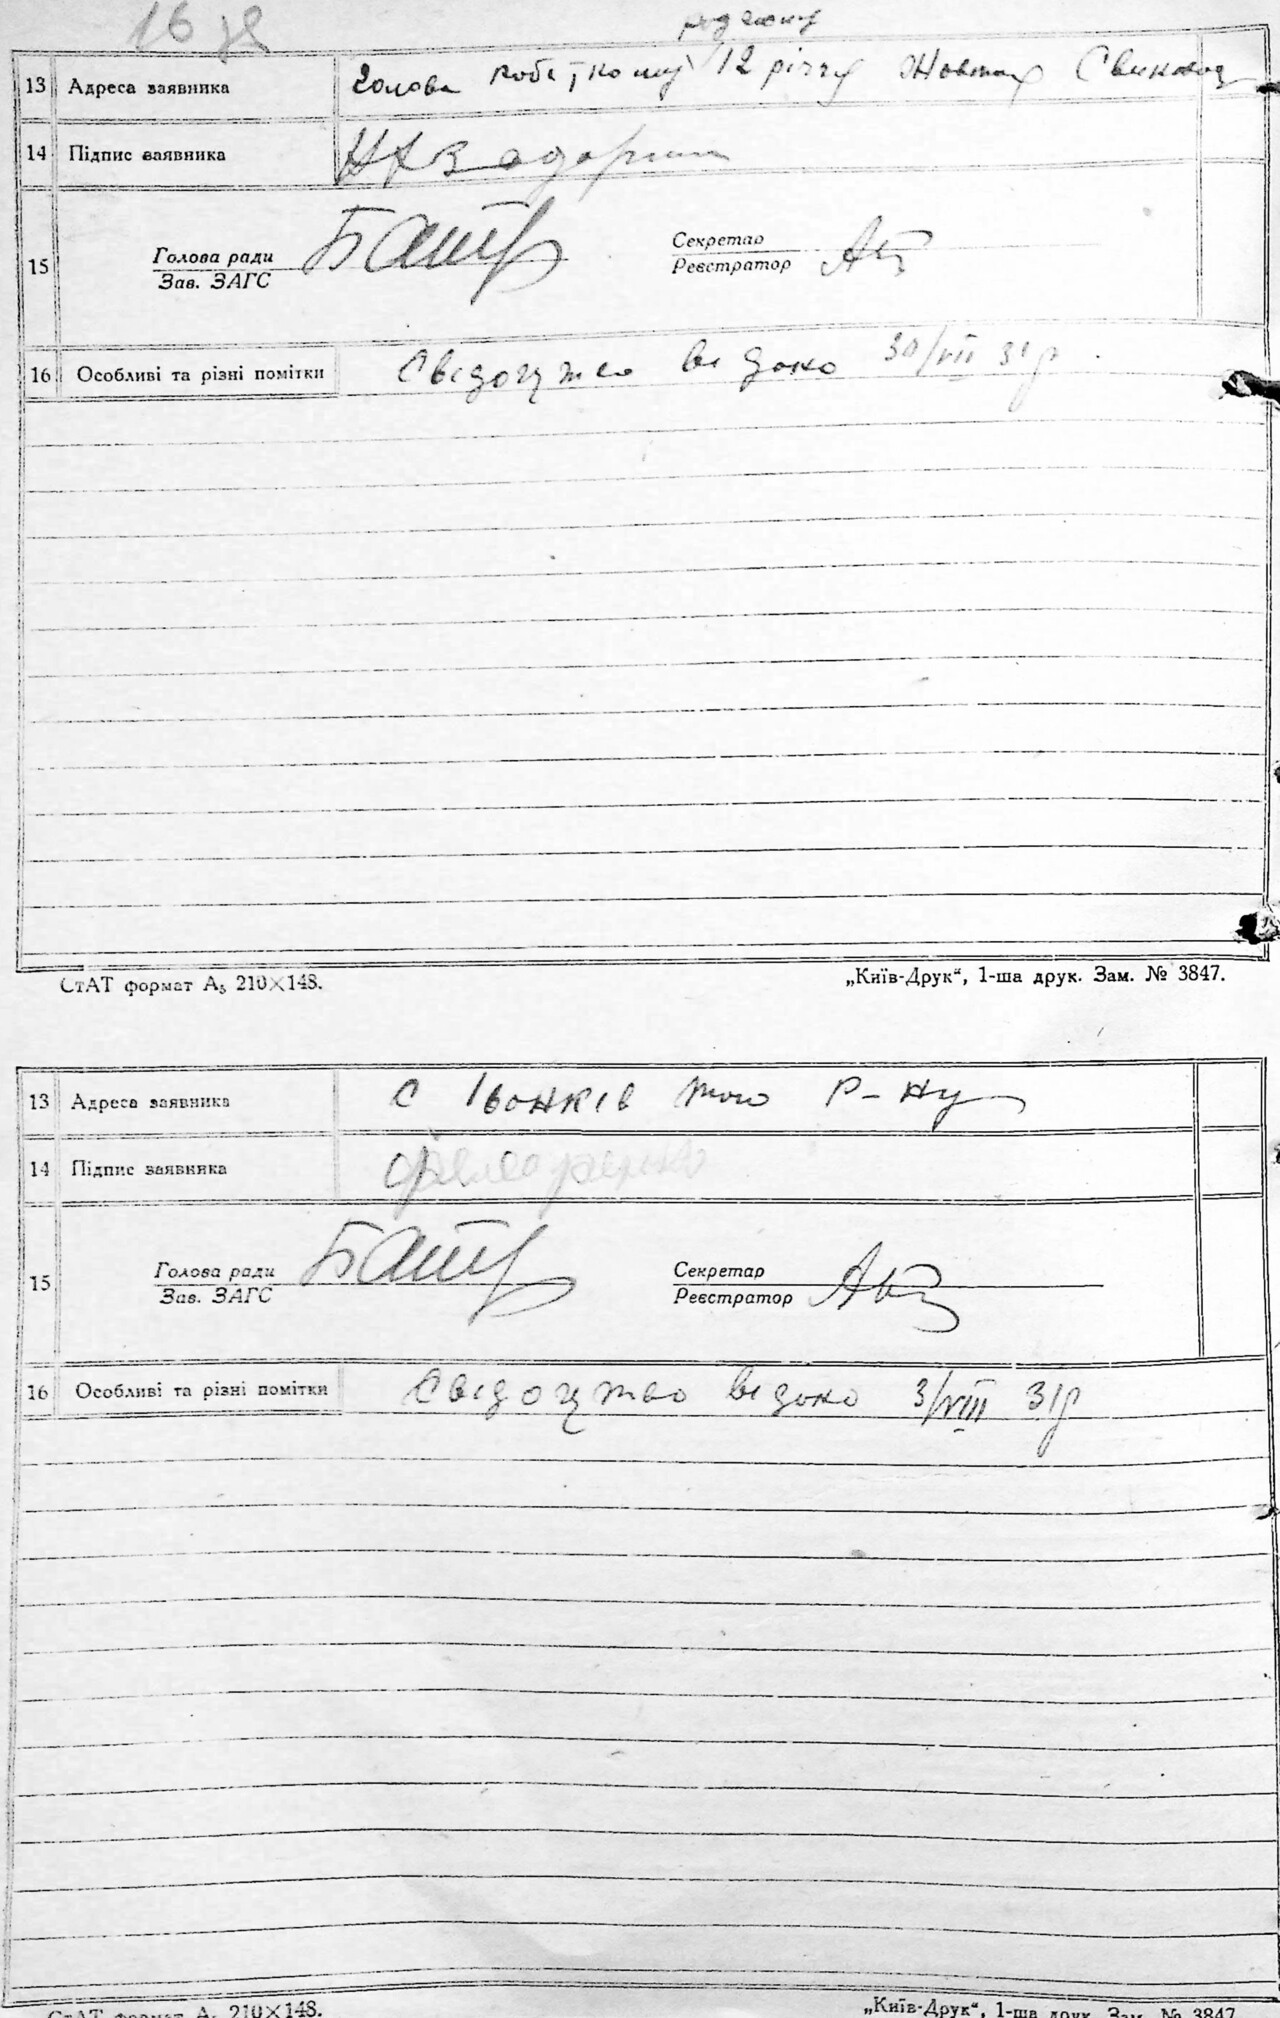 16 зв
13 Адреса заявника Голова робіткому 12 річчу Жовтня
14 Підпис заявника
15 Голова ради Секретар
Зав. ЗАГС Реєстратор
16 Особливі та різні помітки Свідоцтво видано 30/VII 31р.
СтАТ формат А₅ 210×148. „Київ-Друк“, 1-ша друк. Зам. № 3847.
13 Адреса заявника с Іванків того р-ну
14 Підпис заявника
15 Голова ради Секретар
Зав. ЗАГС Реєстратор
16 Особливі та різні помітки Свідоцтво видано 3/VIII 31р
СтАТ формат А₅ 210×148. „Київ-Друк“, 1-ша друк. Зам. № 3847